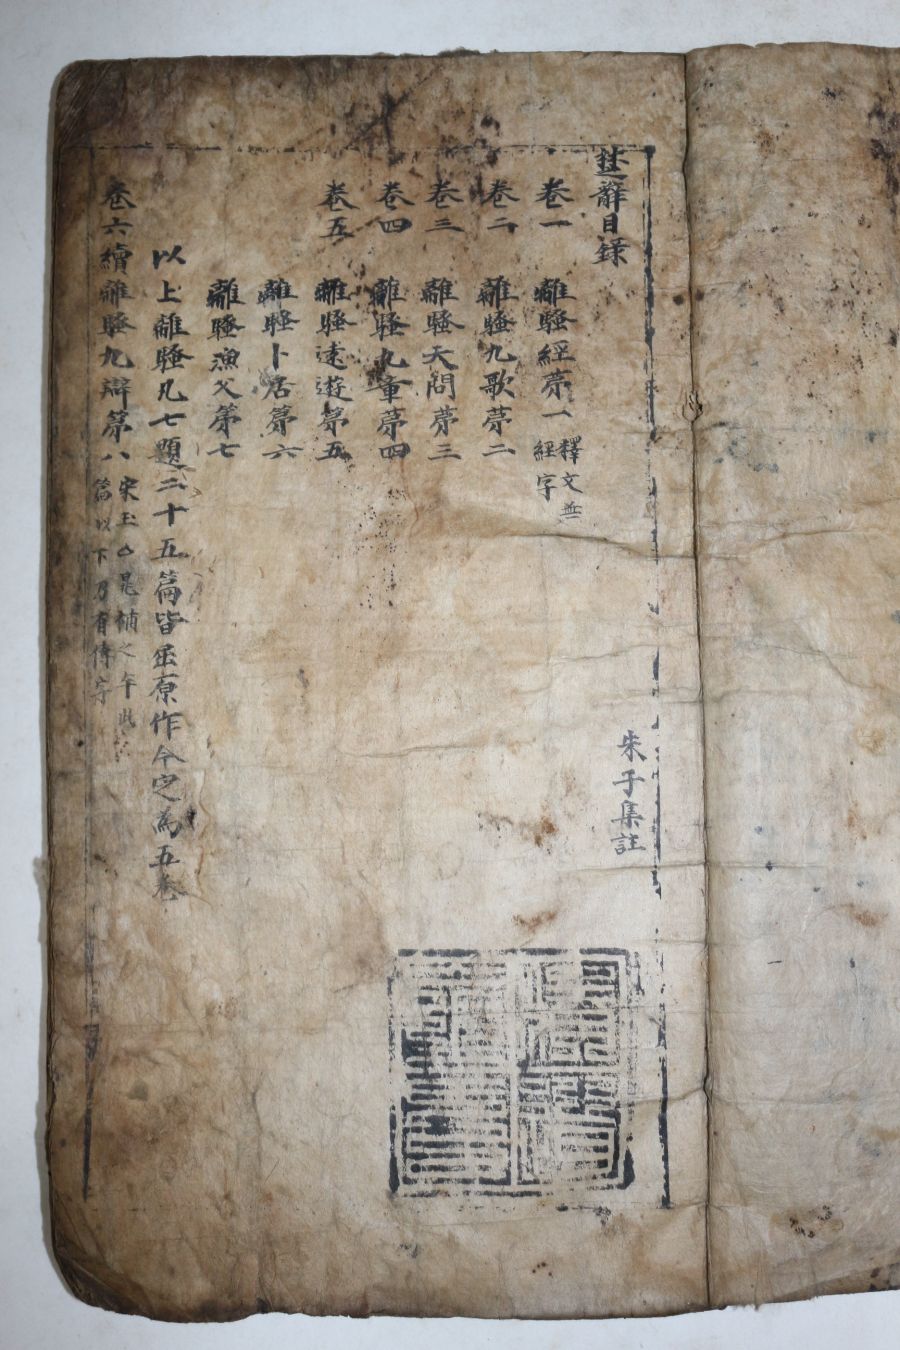 楚辭目録
朱子集註
卷一 離騷經苐一 釋文無
經字
卷二 離騷九歌苐二
卷三 離騷天問苐三
卷四 離騷九章苐四
卷五 離騷遠遊苐五
離騷卜居苐六
離騷漁父苐七
以上離騷凡七題二十五篇皆屈原作今定為五卷
卷六續離騷九辯苐八 宋玉 晁補之本此
篇以下乃有傳字